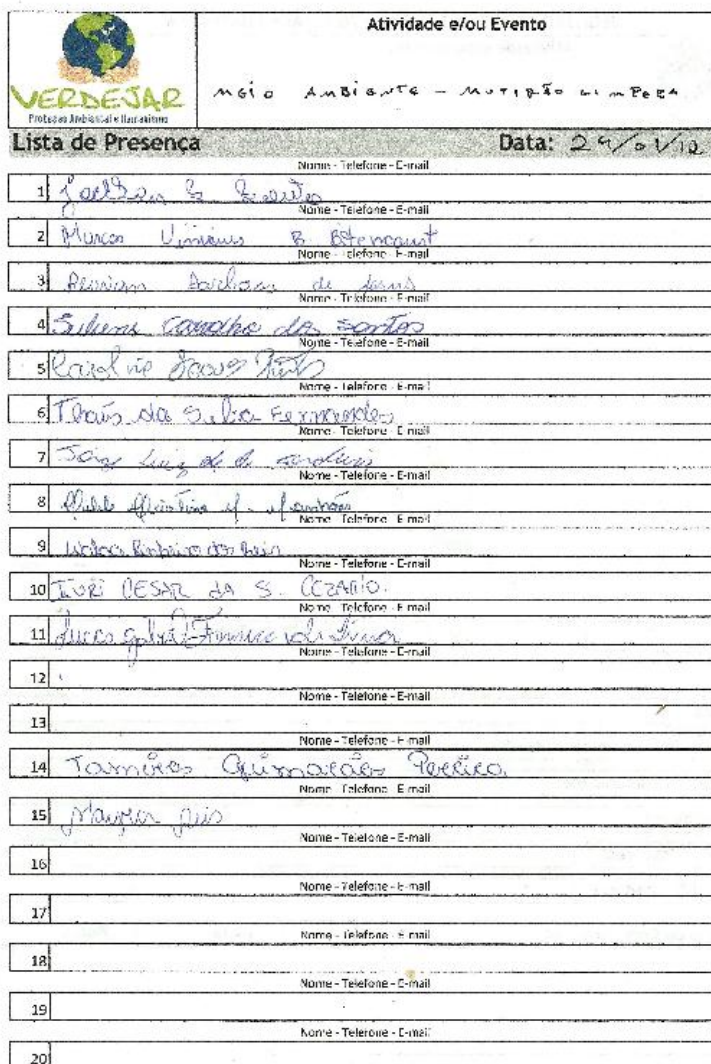 Atividade e/ou Evento
VERDEJAR
Proteção Ambiental e Humanismo
MEIO AMBIENTE - MUTIRÃO LIMPEZA
Lista de Presença Data:
Nome - Telefone - E-mail
1
Nome - Telefone - E-mail
2 Marcos Vinicius B
Nome - Telefone - E-mail
3 de Jesus
Nome - Telefone - E-mail
4 Carvalho dos Santos
Nome - Telefone - E-mail
5 Caroline
Nome - Telefone - E-mail
6 Thaís da Silva Fernandes
Nome - Telefone - E-mail
7 Luiz
Nome - Telefone - E-mail
8
Nome - Telefone - E-mail
9 Pinheiro dos Reis
Nome - Telefone - E-mail
10 IURI CESAR DA S. CEZARIO.
Nome - Telefone - E-mail
11 Lucas Gabriel
Nome - Telefone - E-mail
12
Nome - Telefone - E-mail
13
Nome - Telefone - E-mail
14 Tamires Guimarães Pereira
Nome - Telefone - E-mail
15 Reis
Nome - Telefone - E-mail
16
Nome - Telefone - E-mail
17
Nome - Telefone - E-mail
18
Nome - Telefone - E-mail
19
Nome - Telefone - E-mail
20